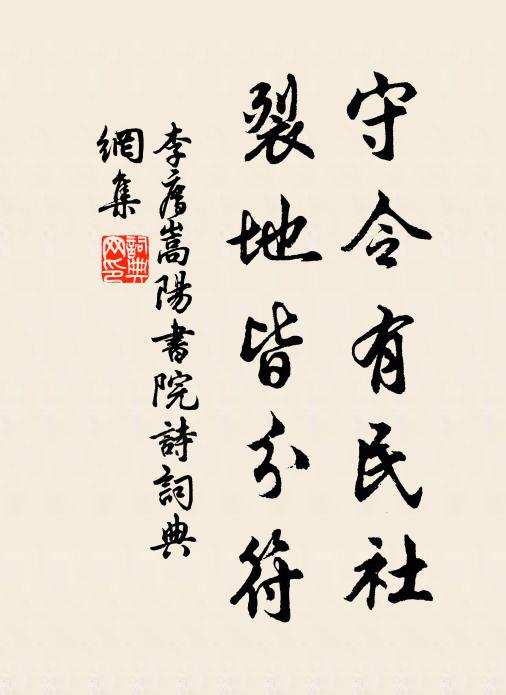 守令有民社
裂地皆分符
李廌嵩陽書院詩詞典
網集
詞典網印